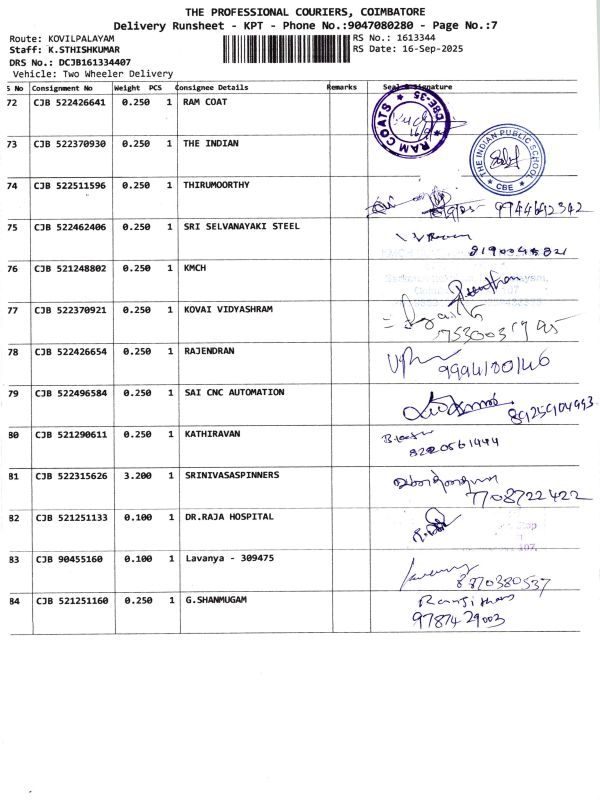 THE PROFESSIONAL COURIERS, COIMBATORE
Delivery Runsheet - KPT - Phone No.:9047080280 - Page No.:7
Route: KOVILPALAYAM RS No.: 1613344
Staff: K.STHISHKUMAR RS Date: 16-Sep-2025
DRS No.: DCJB161334407
Vehicle: Two Wheeler Delivery
S No Consignment No Weight PCS Consignee Details Remarks Seal & Signature
72 CJB 522426641 0.250 1 RAM COAT RAM COATS ★ CBE-35 ★
73 CJB 522370930 0.250 1 THE INDIAN THE INDIAN PUBLIC SCHOOL ★ CBE ★
74 CJB 522511596 0.250 1 THIRUMOORTHY 9944692342
75 CJB 522462406 0.250 1 SRI SELVANAYAKI STEEL
76 CJB 521248802 0.250 1 KMCH
77 CJB 522370921 0.250 1 KOVAI VIDYASHRAM
78 CJB 522426654 0.250 1 RAJENDRAN 9994100146
79 CJB 522496584 0.250 1 SAI CNC AUTOMATION 8925904993
80 CJB 521290611 0.250 1 KATHIRAVAN 8220561444
81 CJB 522315626 3.200 1 SRINIVASASPINNERS 7708722422
82 CJB 521251133 0.100 1 DR.RAJA HOSPITAL
83 CJB 90455160 0.100 1 Lavanya - 309475 8870380537
84 CJB 521251160 0.250 1 G.SHANMUGAM
9787429003